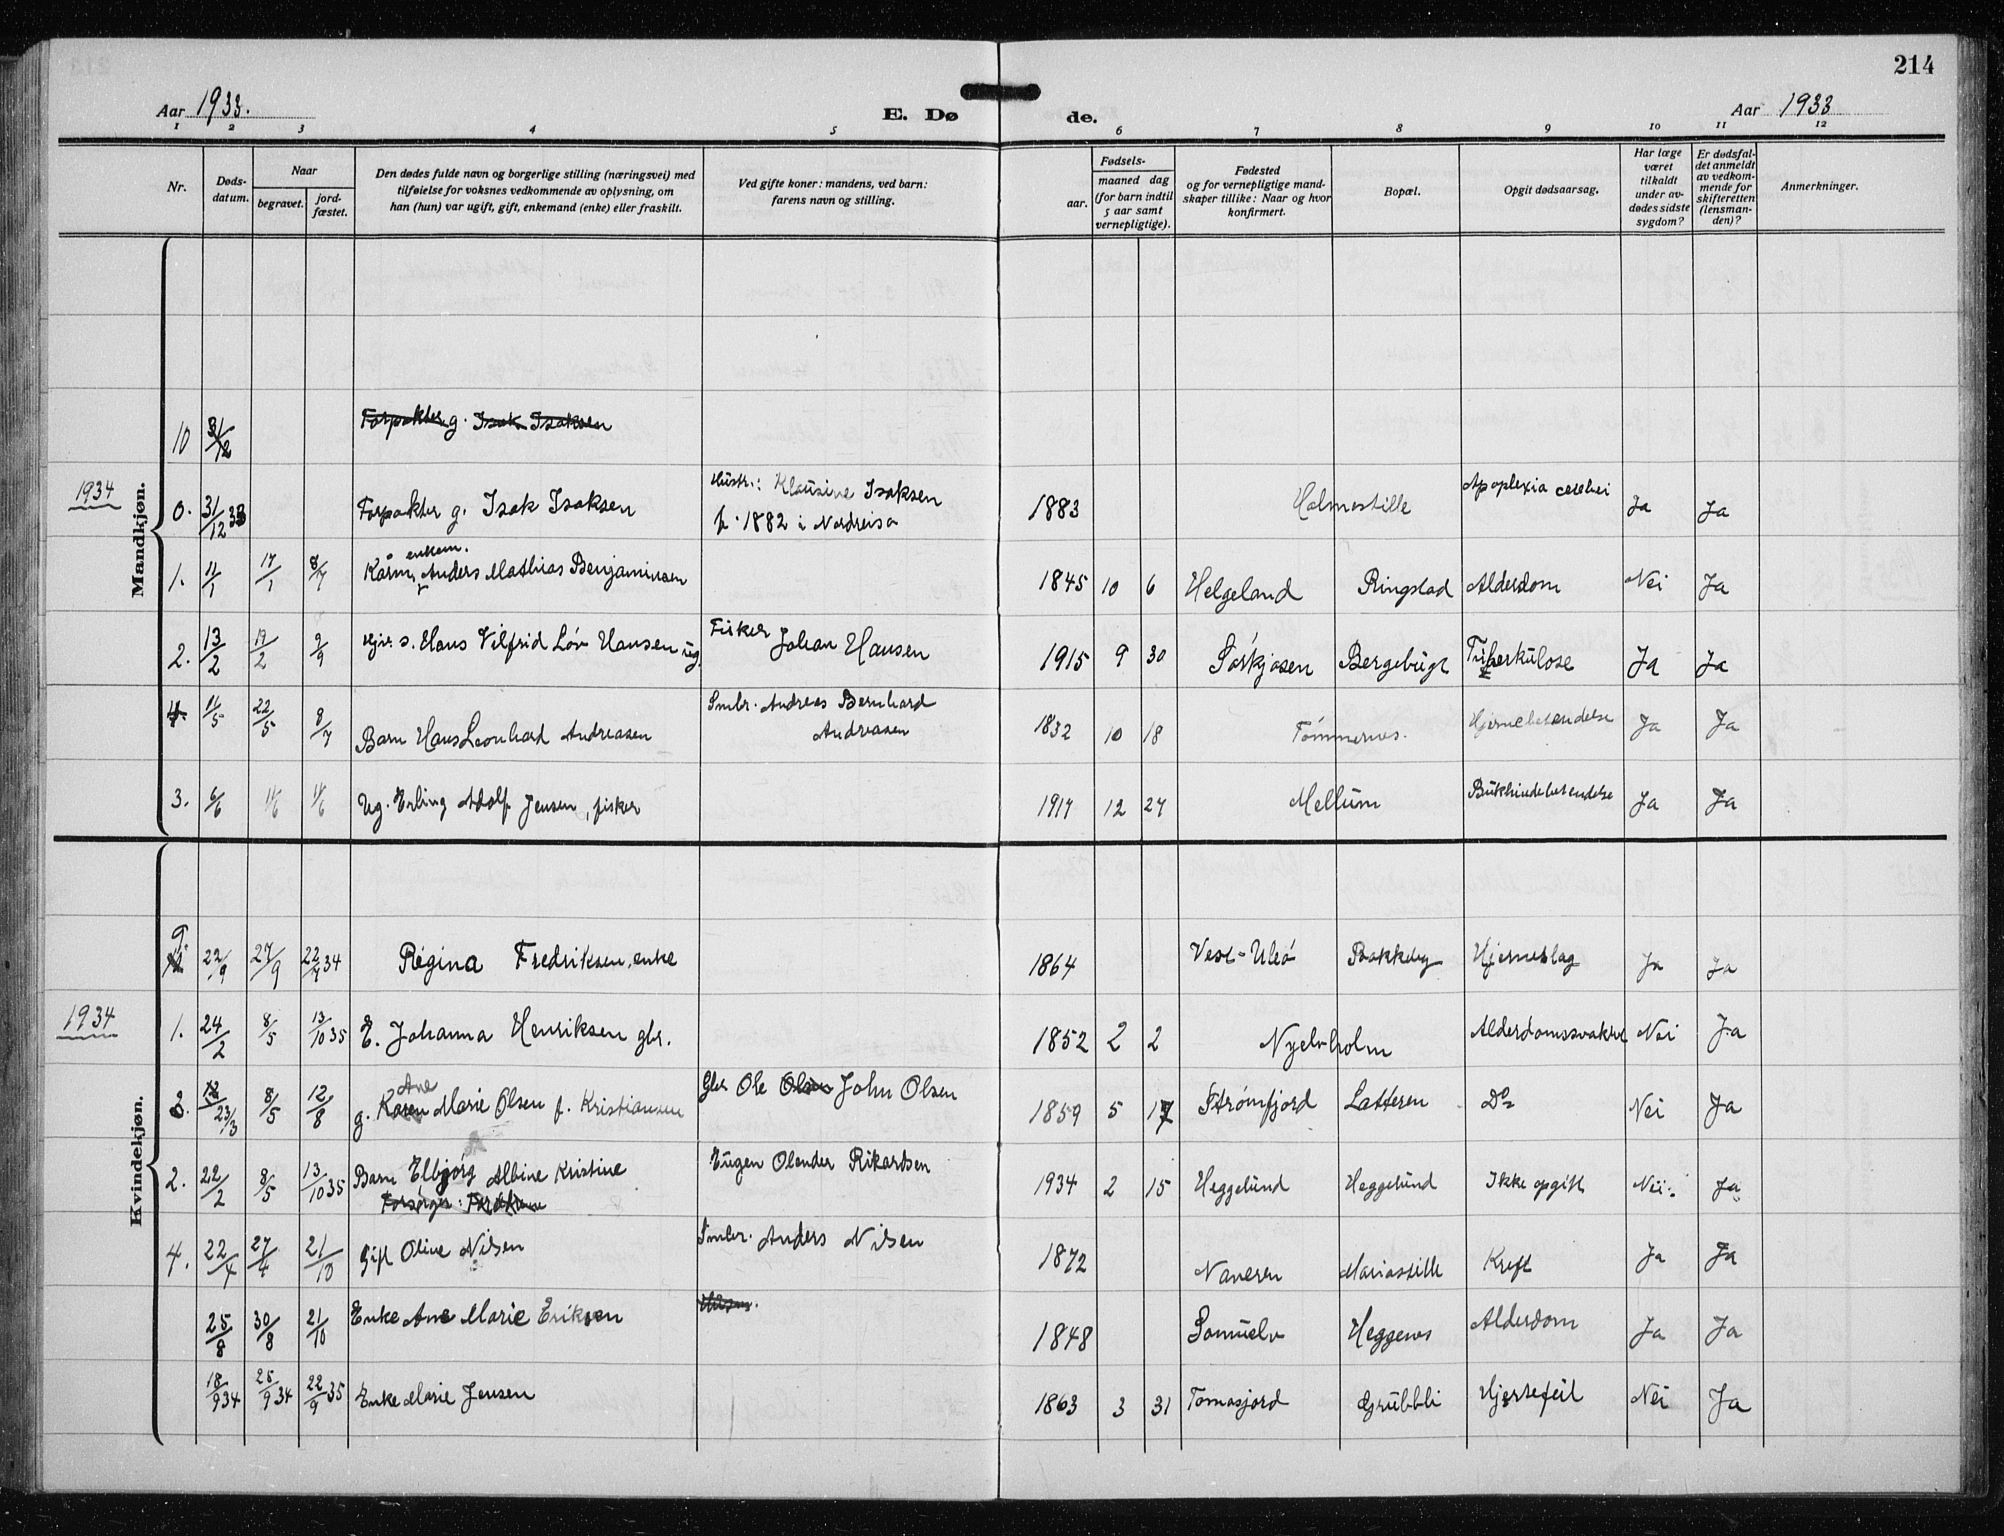 214
Aar 1933.
E. Dø
de.
Aar 1933
1 2 3 4 5 6 7 8 9 10 11 12
Nr.
Døds-
datum.
Naar
begravet.
jord-
fæstet.
Den dødes fulde navn og borgerlige stilling (næringsvei) med
tilføielse for voksnes vedkommende av oplysning, om
han (hun) var ugift, gift, enkemand (enke) eller fraskilt.
Ved gifte koner: mandens, ved barn:
farens navn og stilling.
Fødsels-
aar.
maaned dag
(for barn indtil
5 aar samt
vernepligtige).
Fødested
og for vernepligtige mand-
skaper tillike: Naar og hvor
konfirmert.
Bopæl.
Opgit dødsaarsag.
Har læge
været
tilkaldt
under av-
dødes sidste
sygdom?
Er dødsfal-
det anmeldt
av vedkom-
mende for
skifteretten
(lensman-
den)?
Anmerkninger.
Mandkjøn.
10 31/12 Forpakter g. Isak Isaksen
1934
0. 31/12 33 Forpakter g. Isak Isaksen Hustr.: Klausine Isaksen
f. 1882 i Nordreisa 1883 Holmestille Apoplexia cerebri Ja Ja
enkem.
1. 11/1 17/1 8/7 Kårm. Anders Mathias Benjaminsen 1845 10 6 Helgeland Ringstad Alderdom Nei Ja
2. 13/2 19/2 2/9 Hjv. s. Hans Vilfrid Løv Hansen ug. Fisker Johan Hansen 1915 9 30 Sørkjosen Bergebugt Tuberkulose Ja Ja
4. 11/5 22/5 8/7 Barn Hans Leonhard Andreasen Smbr. Andreas Bernhard
Andreasen 1832 10 18 Tømmernes. Hjernebetendelse Ja Ja
3. 6/6 11/6 11/6 Ug. Erling Adolf Jensen, fisker 1917 12 27 Mellum Bukhindebetendelse Ja Ja
Kvindekjøn.
9. 22/9 27/9 22/4 34 Regina Fredriksen, enke 1864 Vest-Uløi Bakkeby Hjerneslag Ja Ja
1934
1. 24/2 8/5 13/10 35 E. Johanna Henriksen gbr. 1852 2 2 Nyelvholm Alderdomssvakhet Nei Ja
3. 23/3 8/5 12/8 g. Karen Ane Marie Olsen f. Kristiansen Gbr Ole Olsen John Olsen 1859 5 17 Strømfjord Latteren Do Nei Ja
2. 22/2 8/5 13/10 35 Barn Elbjørg Albine Kristine Eugen Olender Rikardsen 1934 2 15 Heggelund Heggelund Ikke opgitt Nei. Ja
4. 22/4 27/4 21/10 Gift Olive Nilsen Smbr. Anders Nilsen 1872 Naneren Mariastille Kreft Ja Ja
25/8 30/8 21/10 Enke Ane Marie Eriksen 1848 Samuelv Heggenes Alderdom Ja Ja
18/9 34 25/9 34 22/9 35 Enke Marie Jensen 1863 3 31 Tomasjord Grubbli Hjertefeil Nei Ja